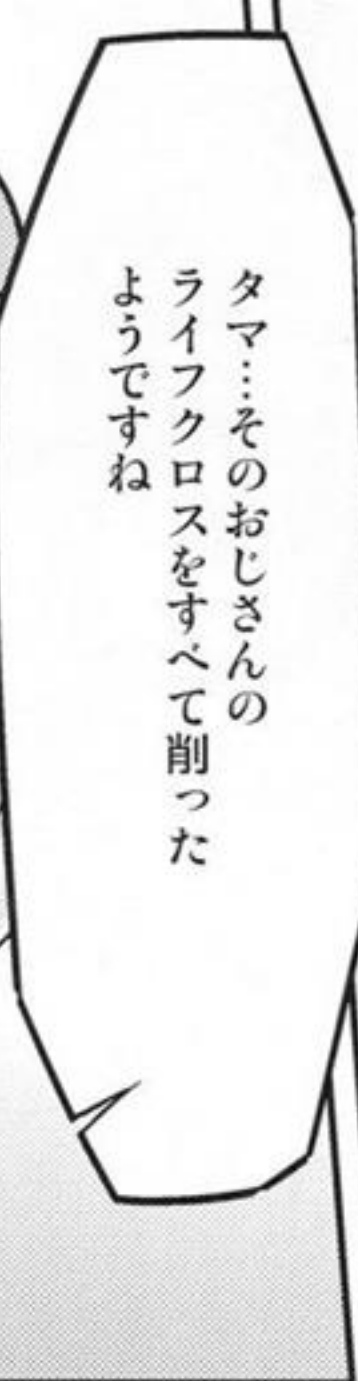 タマ…そのおじさんの
ライフクロスをすべて削った
ようですね